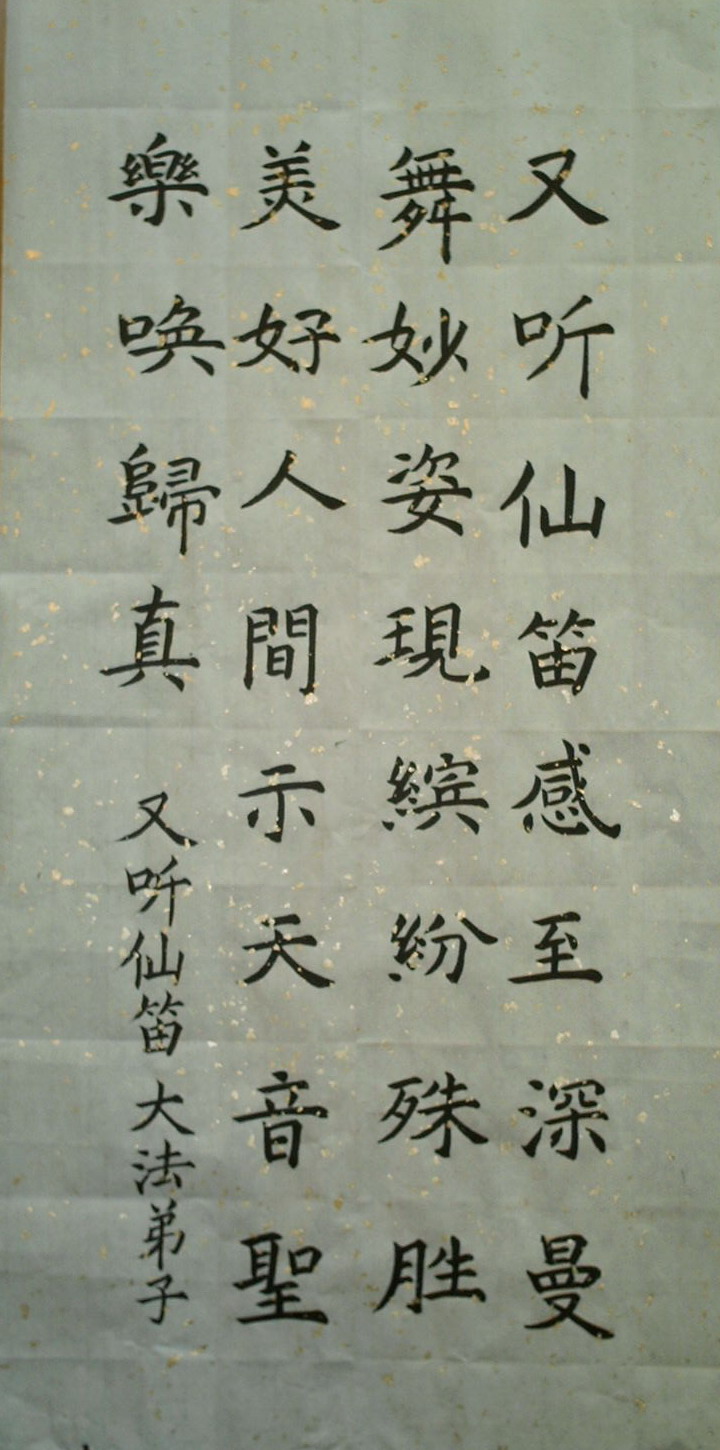 又听仙笛感至深曼
舞妙姿現缤紛殊胜
美好人間示天音聖
樂唤歸真
又听仙笛 大法弟子